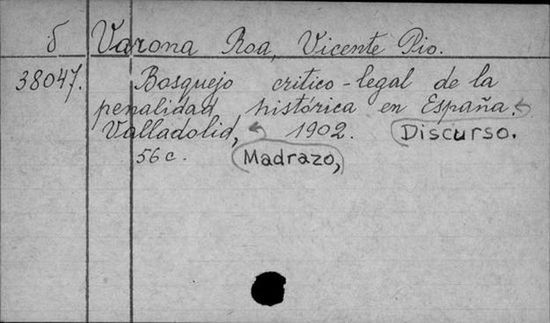 б Varona Roa, Vicente Pio.
38047. Bosquejo critico-legal de la
penalidad histórica en España.
Valladolid, 1902. Discurso.
56 c. Madrazo,